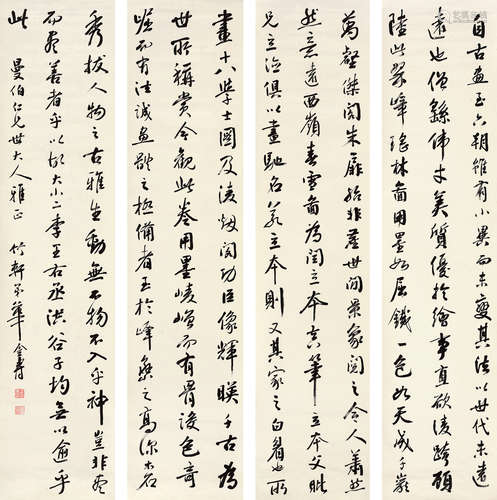 自古畫至六朝雖有小異而未變其法以世代未遠
遠也僧繇偉才美質優於繪事直欲凌跨顧
陸此翠峰瑤林圖用墨如屈鐵一色如天成千巖
萬壑傑閣朱扉殆非塵世間景象閱之令人蕭然
然意遠西嶺春雪圖為閻立本真筆立本父毗
兄立德俱以畫馳名若立本則又其家之白眉也所
畫十八學士圖及凌煙閣功臣像輝暎千古為
世所稱賞今觀此卷用墨崚嶒而有骨設色奇
崛而有法誠畫之極備者至於峰巒之高深木石
秀拔人物之古雅生動無不物不入乎神豈非盡
而盡善者乎以故大小二李王右丞洪谷子均無以俞乎
此
曼伯仁兄世大人雅正
竹軒弟華金壽